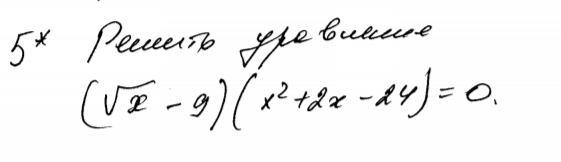 5* Решить уравнение
(√x - 9)(x²+2x-24)=0.